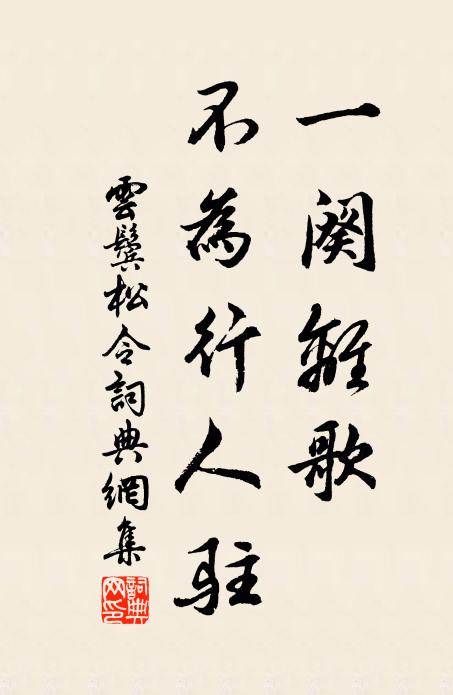 一闋離歌
不為行人駐
雲鬢松令詞典網集
詞典網印